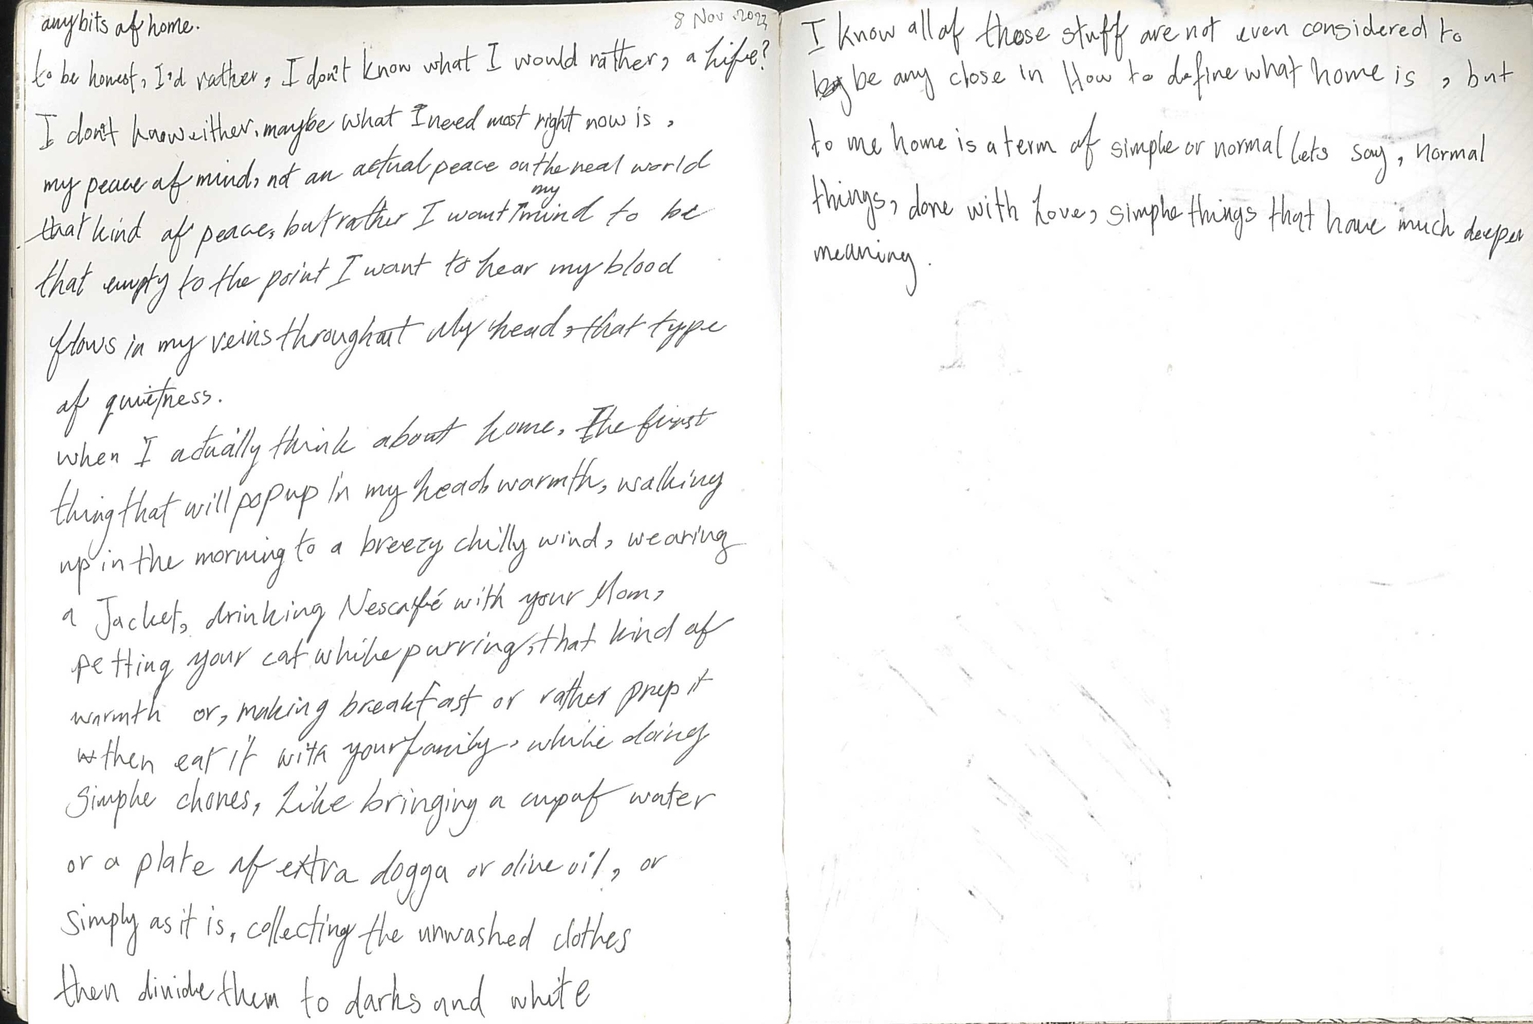 any bits of home.
8 Nov. 2023
to be honest, I'd rather, I don't know what I would rather, a Life?
I don't know either, maybe what I need most right now is,
my peace of mind, not an actual peace on the real world
that kind of peace, but rather I want my mind to be
that empty to the point I want to hear my blood
flows in my veins throughout My head, that type
of quietness.
when I actually think about home, The first
thing that will pop up in my head, warmth, walking
up in the morning to a breezy chilly wind, wearing
a Jacket, drinking Nescafé with your Mom,
petting your cat while purring, that kind of
warmth or, making breakfast or rather prep it
then eat it with your family, while doing
simple chores, Like bringing a cup of water
or a plate of extra dogga or olive oil, or
simply as it is, collecting the unwashed clothes
then divide them to darks and white
I know all of those stuff are not even considered to
be any close in How to define what home is, but
to me home is a term of simple or normal lets say, normal
things, done with Love, simple things that have much deeper
meaning.